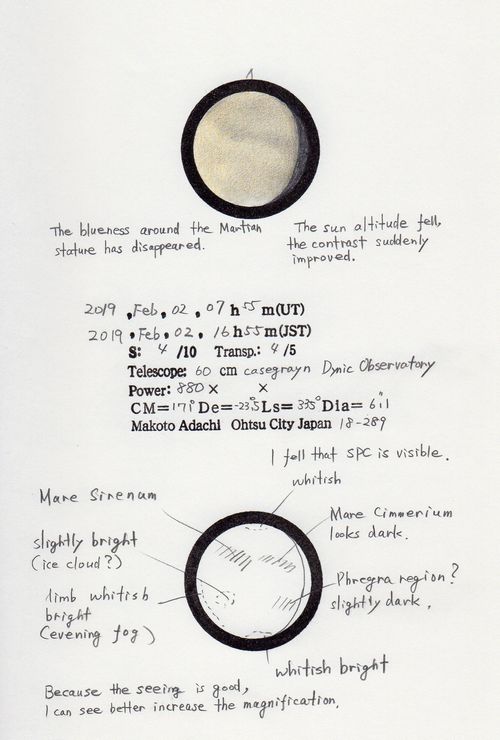 The blueness around the Martian
stature has disappeared.
The sun altitude fell,
the contrast suddenly
improved.
2019, Feb, 02, 07 h 55 m(UT)
2019, Feb, 02, 16 h 55 m(JST)
S: 4 /10 Transp.: 4 /5
Telescope: 60 cm casegrayn Dynic Observatory
Power: 880 × ×
CM=171° De=-23.5° Ls=335° Dia=6".1
Makoto Adachi Ohtsu City Japan 18-289
I fell that SPC is visible.
whitish
Mare Sirenum
Mare Cimmerium
looks dark.
slightly bright
(ice cloud?)
Phregra region?
slightly dark.
limb whitish
bright
(evening fog)
whitish bright
Because the seeing is good,
I can see better increase the magnification.